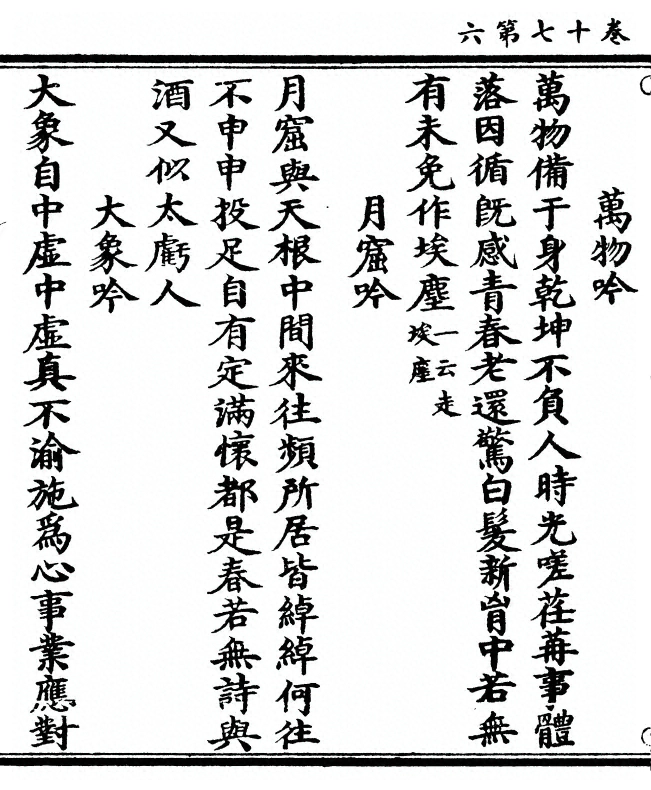 卷十七第六
萬物吟
萬物備于身乾坤不負人時光嗟荏苒事體
落因循旣感青春老還驚白髮新胷中若無
有未免作埃塵一云走埃塵
月窟吟
月窟與天根中間來往頻所居皆綽綽何往
不申申投足自有定滿懷都是春若無詩與
酒又似太虧人
大象吟
大象自中虛中虛真不渝施爲心事業應對